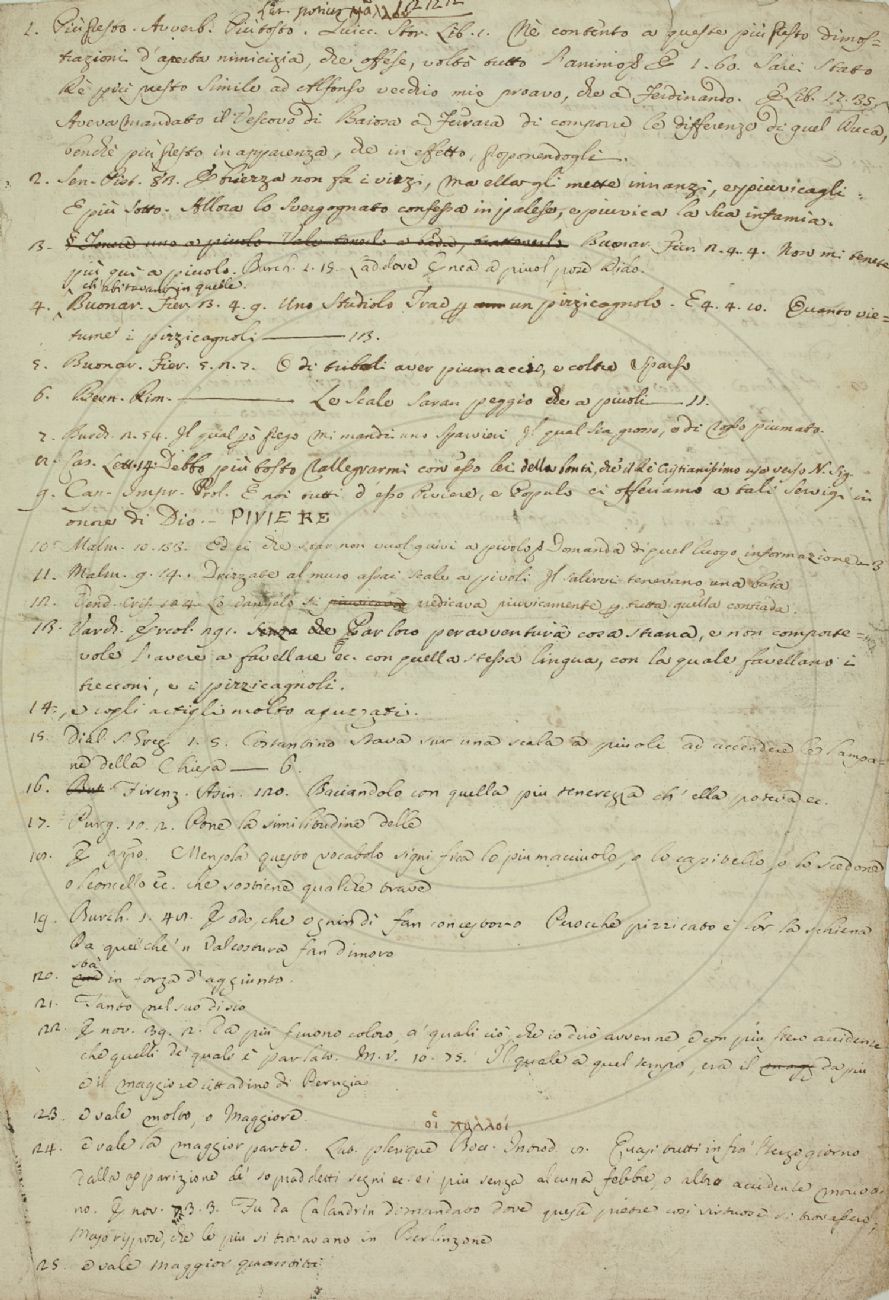 Lat. potius μᾶλλον
1. Più presto. Avverb. Piuttosto. Guicc. Stor. Lib. 1. Nè contento a queste più presto dimos=
trazioni d'aperta nimicizia, che offese, voltò tutto l'animo 1. 60. Sarei stato
Rè più presto simile ad Alfonso vecchio mio proavo, che a Ferdinando. E Lib. 17. 35.
Aveva mandato il Vescovo di Baiosa a Ferrara di comporre le differenze di quel Duca,
benchè più presto in apparenza, che in effetto, proponendogli
2. Sen. Pist. 83. Ebriezza non fa i vizj, ma ella gli mette innanzi, e piuvicagli.
E più sotto. Allora lo svergognato confessa in palese, e piuvica la sua infamia.
3. Buonar. Fier. 2. 4. 4. Non mi tenete
più quì a piuolo. Burch. 1. 18. Laddove Enea a piuol pose Dido.
ch'abitavano in quelle
4. Buonar. Fier. 3. 4. 9. Uno studiolo un pizzicagnolo. E 4. 4. 10. Quanto vie=
tume i pizzicagnoli 113.
5. Buonar. Fier. 5. O di aver piumacci, e coltre sparso
6. Bern. Rim. Le scale saran peggio che a piuoli 11.
7. Burch. 2. 54. Il qual priego mi mandi uno sparvieri Il qual sia grosso, e di piumato.
8. Cas. Lett. 14. Debbo più tosto rallegrarmi con esso lei della bontà, che il Rè Cristianissimo usa verso N. Sig.
9. Car. Impr. Prol. E noi tutti d'esso Piviere, e Popolo ci offeriamo a tali servigi in
onore di Dio. – PIVIERE
10. Malm. 10. 33. Ed ei che star non vuol quivi a piuolo Domanda di quel luogo informazione
11. Malm. 9. 14. Drizzate al muro assai scale a pivoli Il salirvi tenevano una baia
12. Lo Vangelo si predicava piuvicamente tutta quella contrada.
13. Varch. Ercol. Par loro per avventura cosa strana, e non comporte=
vole l'avere a favellare &c. con quella stessa lingua, con la quale favellano i
trecconi, e i pizzicagnoli.
14. , e cogli artigli molto aguzzati.
15. Dial. S. Greg. 1. 5. Costantino stava sur una scala a piuoli ad accendere le lampa=
ne della Chiesa — 6.
16. Firenz. Asin. 120. Baciandolo con quella più tenerezza ch'ella poteva ec.
17. Purg. 10. 2. Pone la similitudine delle
18. Mensola questo vocabolo significa lo piumacciuolo, o lo capitello, o lo scedone
o leoncello &c. che sostiene qualche trave
19. Burch. 1. 48. E odo, che ognindì fan concestoro Perocchè pizzicato è sor la schiena
Da quei che 'n Valcostura fan dimoro
stà
20. in forza d'aggiunto.
21. Tanto nel suo disio
22. E nov. 39. 2. Da più furono coloro, a' quali ciò, che io dirò avvenne e con più fiero accidente
che quelli de' quali è parlato. M. V. 10. 75. Il quale a quel tempo, era il da più
e il maggiore cittadino di Perugia
23. e vale molto, o Maggiore
οἱ πολλοί
24. e vale la maggior parte. Lat. plerique Bocc. Introd. 8. Quasi tutti infra 'l terzo giorno
dalla apparizione de' sopraddetti segni ec. e i più senza alcuna febbre, o altro accidente morivano
no. E nov. 73. 3. Fu da Calandrin dimandato dove queste pietre così virtuose si trovassero,
Maso rispose, che le più si trovavano in Berlinzone
25. e vale maggior quantità